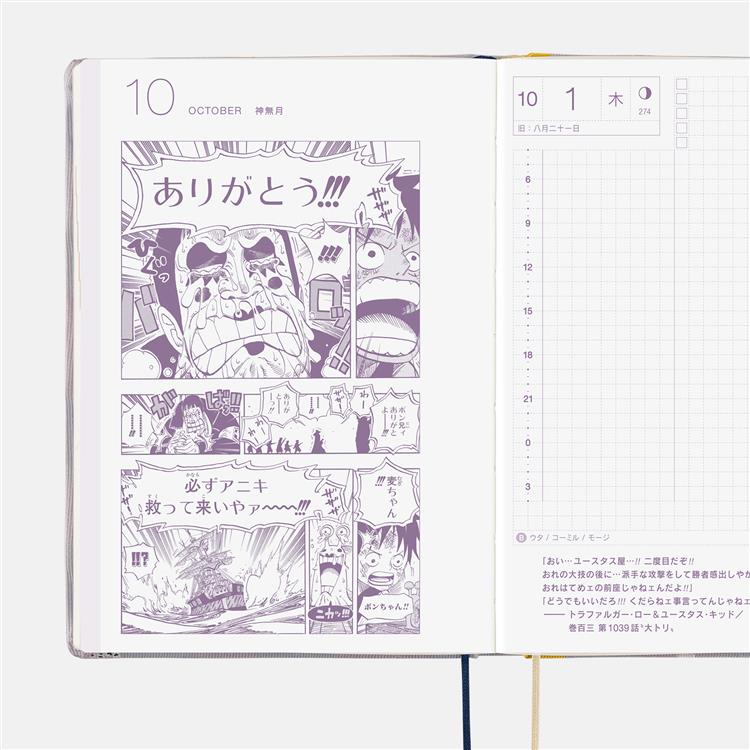 10 OCTOBER 神無月
ありがとう!!!
ギギギ
ひぐっ
!!!
バ
ロ
ッ
!!
ガ
ばっ!!
ありがとーっ!!
わー
わー
ボン兄ィありがとよー!!!
必ずアニキ
救って来いやァ〜〜〜!!!
麦ちゃん!!!
!!?
ニカッ!!!
ボンちゃん!!
10 1 木 274
旧:八月二十一日
6
9
12
15
18
21
0
3
B ウタ / コーミル / モージ
「おい…ユースタス屋…!! 二度目だぞ!!
おれの大技の後に…派手な攻撃をして勝者感出しやが
おれはてめェの前座じゃねェんだよ!!」
「どうでもいいだろ!!! くだらねェ事言ってんじゃねェ
―― トラファルガー・ロー&ユースタス・キッド/
巻百三 第1039話〝大トリ〟